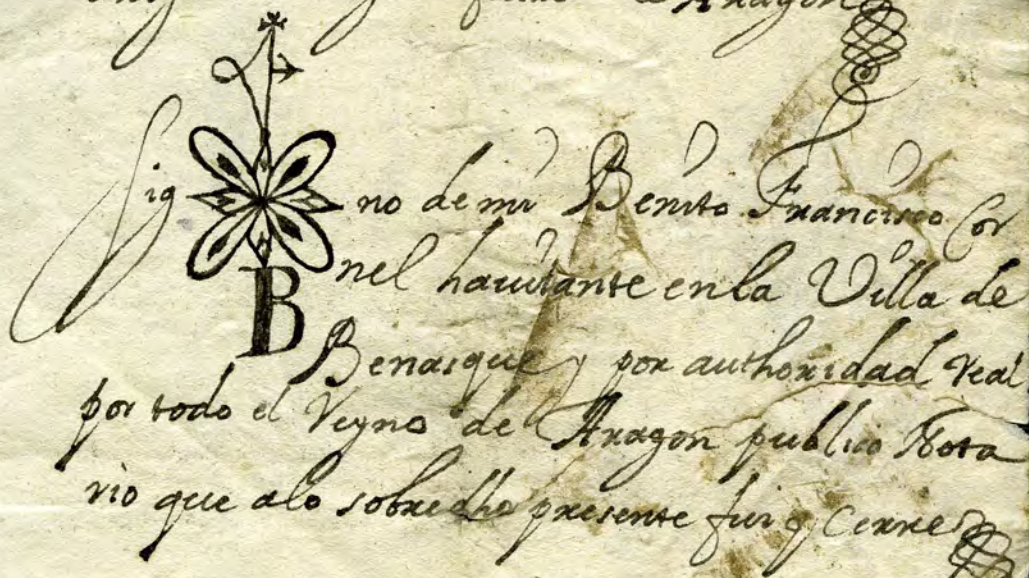 de Aragon
Sig no de mi Benito Francisco Cor
nel hauitante en la Villa de
B Benasque y por authoridad Real
por todo el Reyno de Aragon publico Nota
rio que a lo sobredho presente fui y cerre